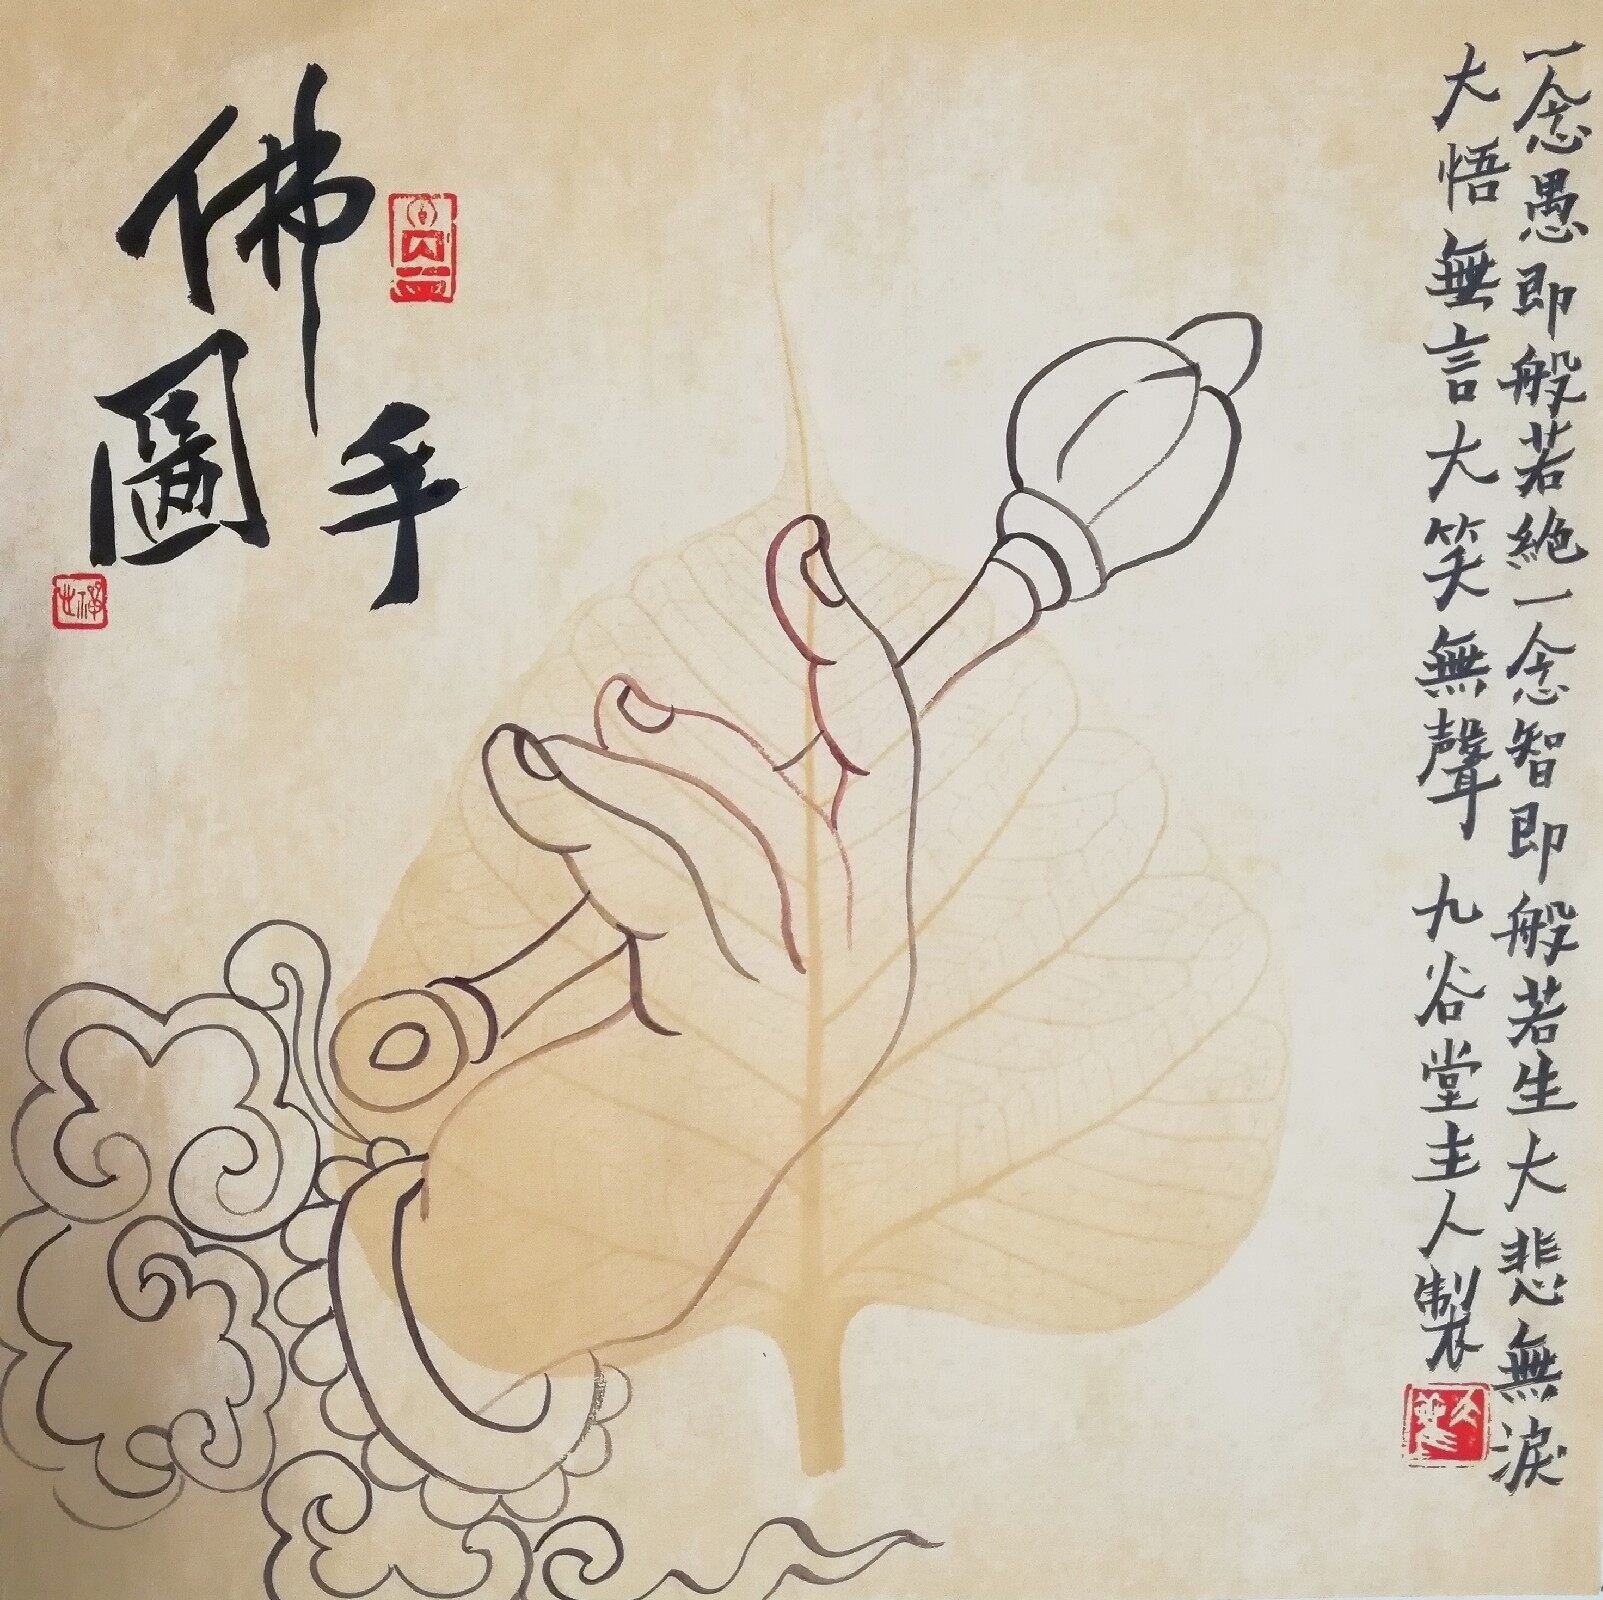 一念愚即般若絶一念智即般若生大悲無淚
大悟無言大笑無聲 九谷堂主人製
佛手
圖